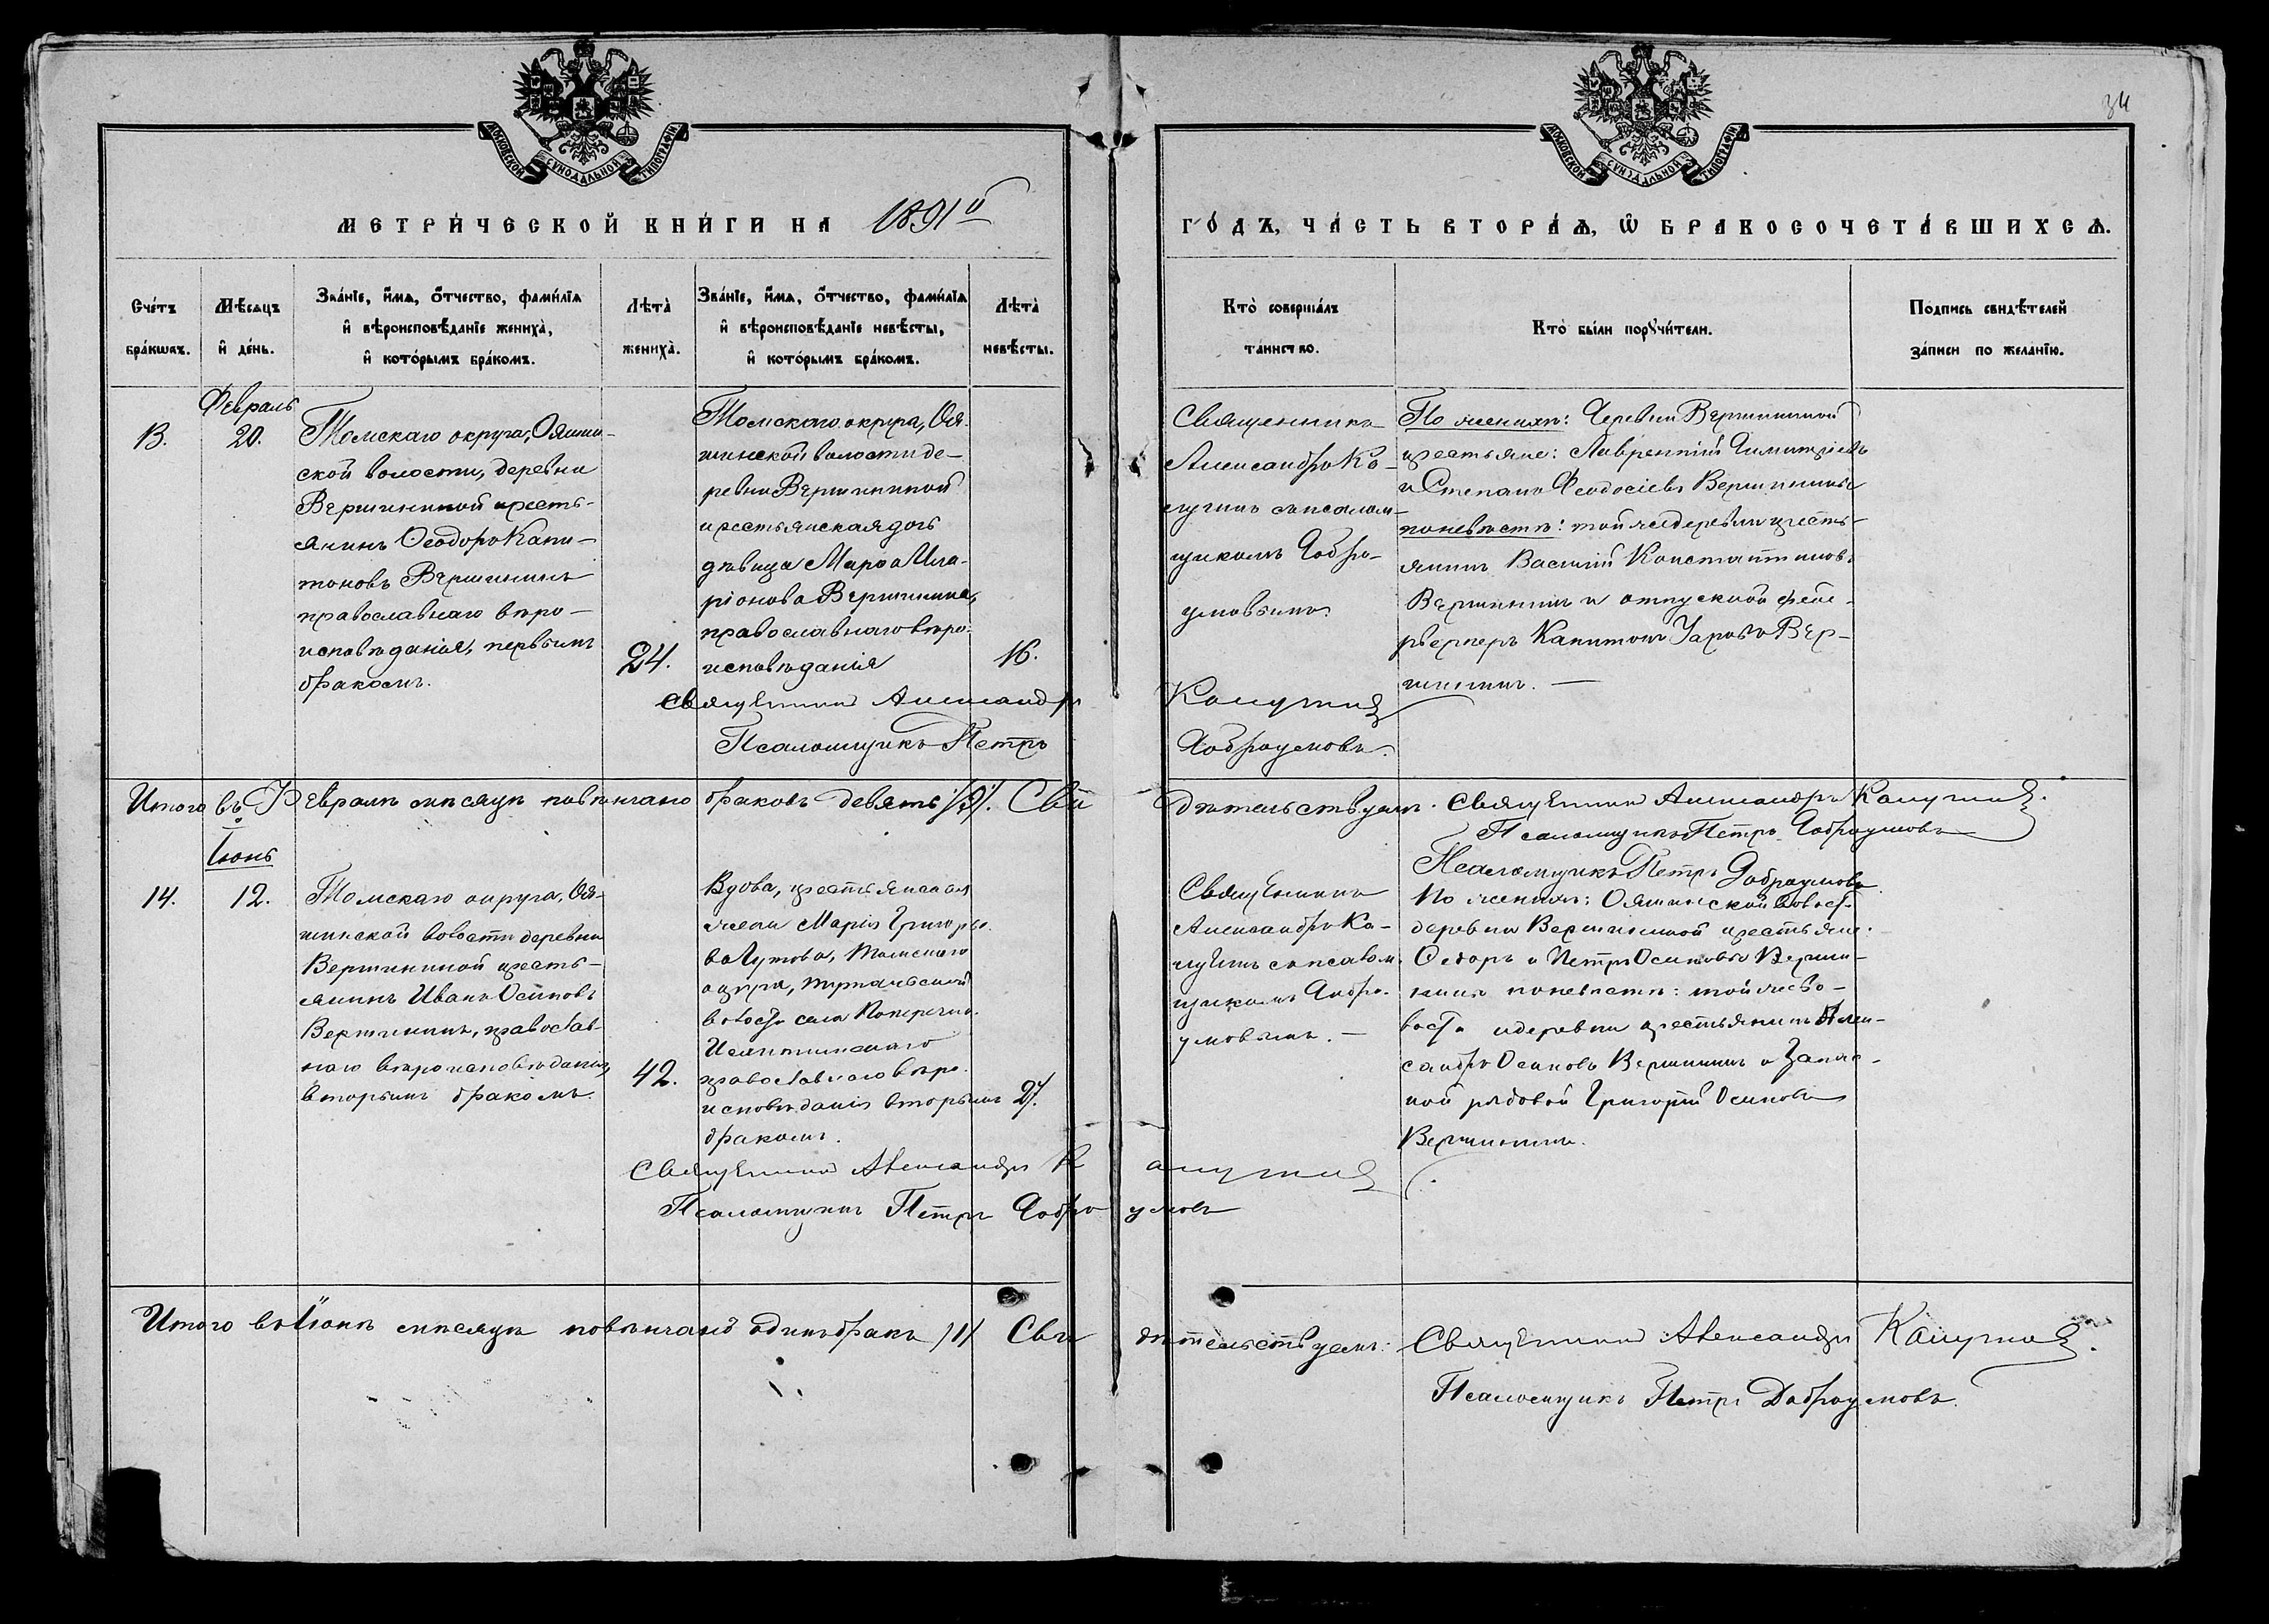 34
МОСКОВСКОЙ СУНОДАЛЬНОЙ ТИПОГРАФІИ
МОСКОВСКОЙ СУНОДАЛЬНОЙ ТИПОГРАФІИ
МЕТРИ́ЧЕСКОЙ КНИ́ГИ НА 1891й
ГО́ДЪ, ЧА́СТЬ ВТОРА́Ѧ, Ѡ҆ БРАКОСОЧЕТА́ВШИХСѦ.
Сче́тъ бра́кѡвъ.
Мѣ́сѧцъ и҆ де́нь.
Зва́нїе, и҆́мѧ, ѻ҆́тчество, фамѵ́лїѧ
и҆ вѣроисповѣ́данїе жениха̀,
и҆ кото́рымъ бра́комъ.
Лѣта̀ жениха̀.
Зва́нїе, и҆́мѧ, ѻ҆́тчество, фамѵ́лїѧ
и҆ вѣроисповѣ́данїе невѣ́сты,
и҆ кото́рымъ бра́комъ.
Лѣта̀ невѣ́сты.
Кто̀ соверша́лъ
та́инство.
Кто̀ бы́ли порꙋчи́тели.
Подпись свидѣ́телей
за́писи по жела́нїю.
Февраль
13.
20.
Томскаго округа, Ояшин-
ской волости, деревни
Вершининой кресть-
янинъ Ѳеодоръ Капи-
тоновъ Вершининъ
православнаго вѣро-
исповѣданія, первымъ
бракомъ.
24.
Томскаго округа, Оя-
шинской волости де-
ревни Вершининой
крестьянская дочь
дѣвица Марѳа Ила-
ріонова Вершинина,
православнаго вѣро-
исповѣданія
16.
Священникъ
Александръ Ка-
лугинъ съ псалом-
щикомъ Добро-
умовымъ.
По женихѣ: Деревни Вершининой
крестьяне: Лаврентій Димитріевъ
и Степанъ Ѳеодосіевъ Вершинины
по невѣстѣ: той же деревни кресть-
янинъ Василій Константиновъ
Вершининъ и отпускной фей-
рверкеръ Капитонъ Вер-
шининъ. —
Священникъ Александръ Калугинъ
Псаломщикъ Петръ Доброумовъ.
Итого въ Февралѣ мѣсяцѣ повѣнчано браковъ девять /9/. Свидѣтельствуемъ. Священникъ Александръ Калугинъ.
Псаломщикъ Петръ Доброумовъ
Іюнь
14.
12.
Томскаго округа, Оя-
шинской волости деревни
Вершининой кресть-
янинъ Иванъ Осиповъ
Вершининъ, православ-
наго вѣроисповѣданія,
вторымъ бракомъ.
42.
Вдова, крестьянская
жена Марія Григорье-
ва Томскаго
округа,
волости села Поперечно-
Искитимскаго
православнаго вѣро-
исповѣданія вторымъ
бракомъ.
27.
Священникъ
Александръ Ка-
лугинъ съ псалом-
щикомъ Добро-
умовымъ. —
Псаломщикъ Петръ Доброумовъ.
По женихѣ: Ояшинской волос.
деревни Вершининой крестьяне:
Ѳедоръ и Петръ Осиповы Верши-
нины по невѣстѣ: той же во-
лости и деревни крестьянинъ Алек-
сандръ Осиповъ Вершининъ и Запас-
ной рядовой Григорій Осиповъ
Вершининъ.
Священникъ Александръ Калугинъ
Псаломщикъ Петръ Доброумовъ
Итого въ Іюнѣ мѣсяцѣ повѣнчанъ одинъ бракъ /1/ Свидѣтельствуемъ: Священникъ Александръ Калугинъ.
Псаломщикъ Петръ Доброумовъ.